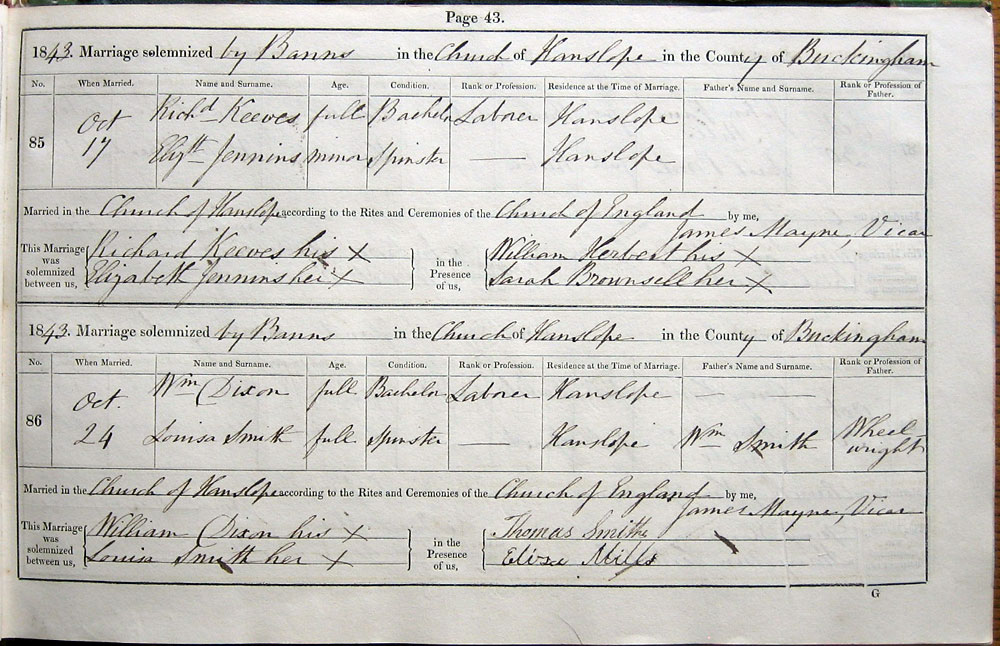 Page 43.
1843. Marriage solemnized by Banns in the Church of Hanslope in the County of Buckingham
No. When Married. Name and Surname. Age. Condition. Rank or Profession. Residence at the Time of Marriage. Father's Name and Surname. Rank or Profession of Father.
85 Oct 17 Richd Keeves full Bachelor Laborer Hanslope
Elizth Jennins minor Spinster — Hanslope
Married in the Church of Hanslope according to the Rites and Ceremonies of the Church of England by me,
James Mayne, Vicar
This Marriage was solemnized between us, Richard Keeves his X in the Presence of us, William Herbert his X
Elizabeth Jennins her X Sarah Brownsell her X
1843. Marriage solemnized by Banns in the Church of Hanslope in the County of Buckingham
No. When Married. Name and Surname. Age. Condition. Rank or Profession. Residence at the Time of Marriage. Father's Name and Surname. Rank or Profession of Father.
86 Oct. 24 Wm Dixon full Bachelor Laborer Hanslope — —
Louisa Smith full Spinster — Hanslope Wm Smith Wheelwright
Married in the Church of Hanslope according to the Rites and Ceremonies of the Church of England by me,
James Mayne, Vicar
This Marriage was solemnized between us, William Dixon his X in the Presence of us, Thomas Smith
Louisa Smith her X Eliza Mills
G